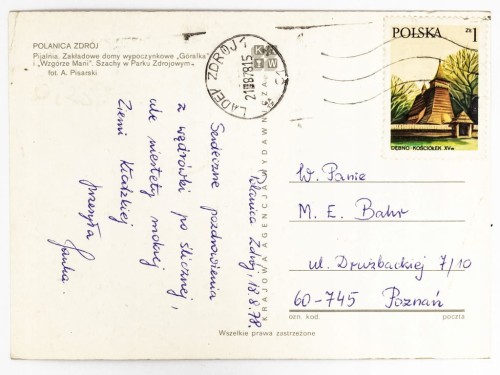 POLANICA ZDRÓJ
Pijalnia. Zakładowe domy wypoczynkowe „Góralka”
i „Wzgórze Marii”. Szachy w Parku Zdrojowym
fot. A. Pisarski
LĄDEK ZDRÓJ 1
21.08.78.15
K A
T W
POLSKA zł 1
DĘBNO KOŚCIÓŁEK XVw
Polanica Zdrój, 18.8.78.
Serdeczne pozdrowienia
z wędrówki po ślicznej,
ale niestety mokrej
Ziemi Kłodzkiej
przesyła
Janka.
KRAJOWA AGENCJA WYDAWNICZA
W. Panie
M. E. Bahr
ul. Drużbackiej 7/10
60-745 Poznań
ozn. kod. poczta
Wszelkie prawa zastrzeżone